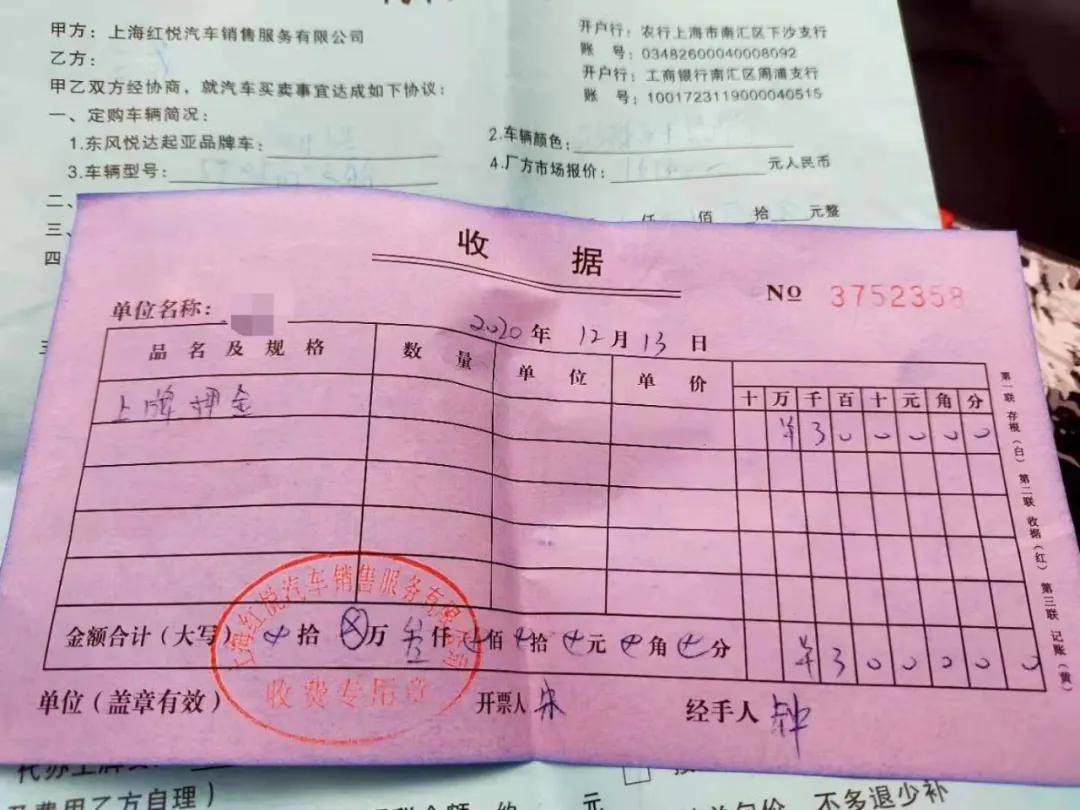 甲方：上海红悦汽车销售服务有限公司
乙方：
甲乙双方经协商，就汽车买卖事宜达成如下协议：
一、定购车辆简况：
1.东风悦达起亚品牌车：
3.车辆型号：
二、
三、
四
开户行：农行上海市南汇区下沙支行
账 号：03482600040008092
开户行：工商银行南汇区周浦支行
账 号：1001723119000040515
2.车辆颜色：
4.厂方市场报价： 元人民币
仟 佰 拾 元整
收 据
单位名称：
2020年 12月 13日
№ 3752358
品名及规格 数量 单位 单价 十万千百十元角分
上牌押金 ¥300000
金额合计（大写） 拾 ⊗万 叁仟 佰 拾 元 角 分 ¥300000
上海红悦汽车销售服务有限公司
收费专用章
单位（盖章有效） 开票人 宋 经手人 钟
第一联 存根（白） 第二联 收据（红） 第三联 记账（黄）
代办上牌
费用乙方自理）
元
不多退少补